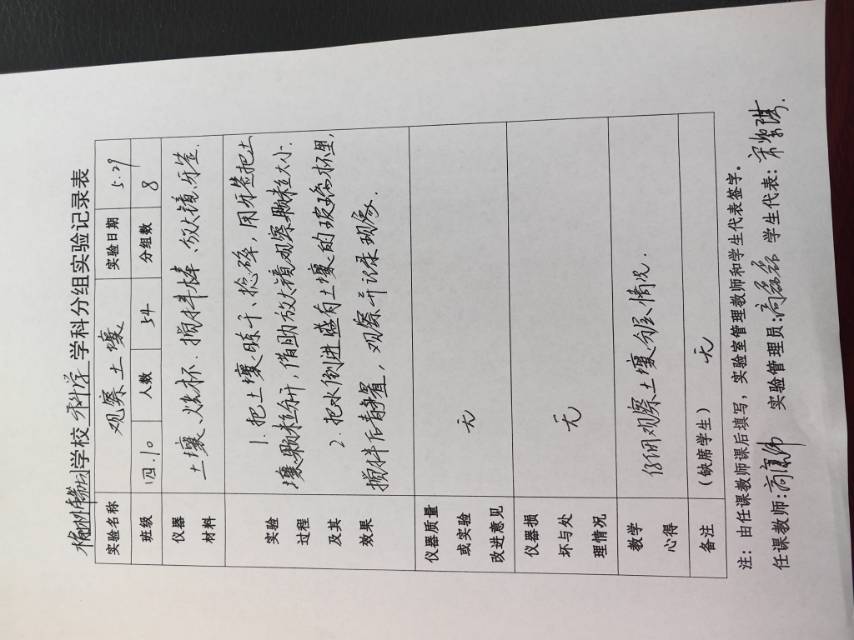 学校 科学 学科分组实验记录表
实验名称 观察土壤 实验日期 5.29
班级 四.10 人数 54 分组数 8
仪器材料 土壤、烧杯、搅拌棒、放大镜、牙签.
实验过程及其效果
1. 把土壤晾干、捻碎，用牙签把土
壤颗粒分开，借助放大镜观察颗粒大小.
2. 把水倒进盛有土壤的玻璃杯里，
搅拌后静置，观察并记录现象.
仪器质量或实验改进意见 无
仪器损坏与处理情况 无
教学心得 仔细观察土壤分层情况.
备注 (缺席学生) 无
注：由任课教师课后填写，实验室管理教师和学生代表签字。
任课教师: 实验管理员: 学生代表: